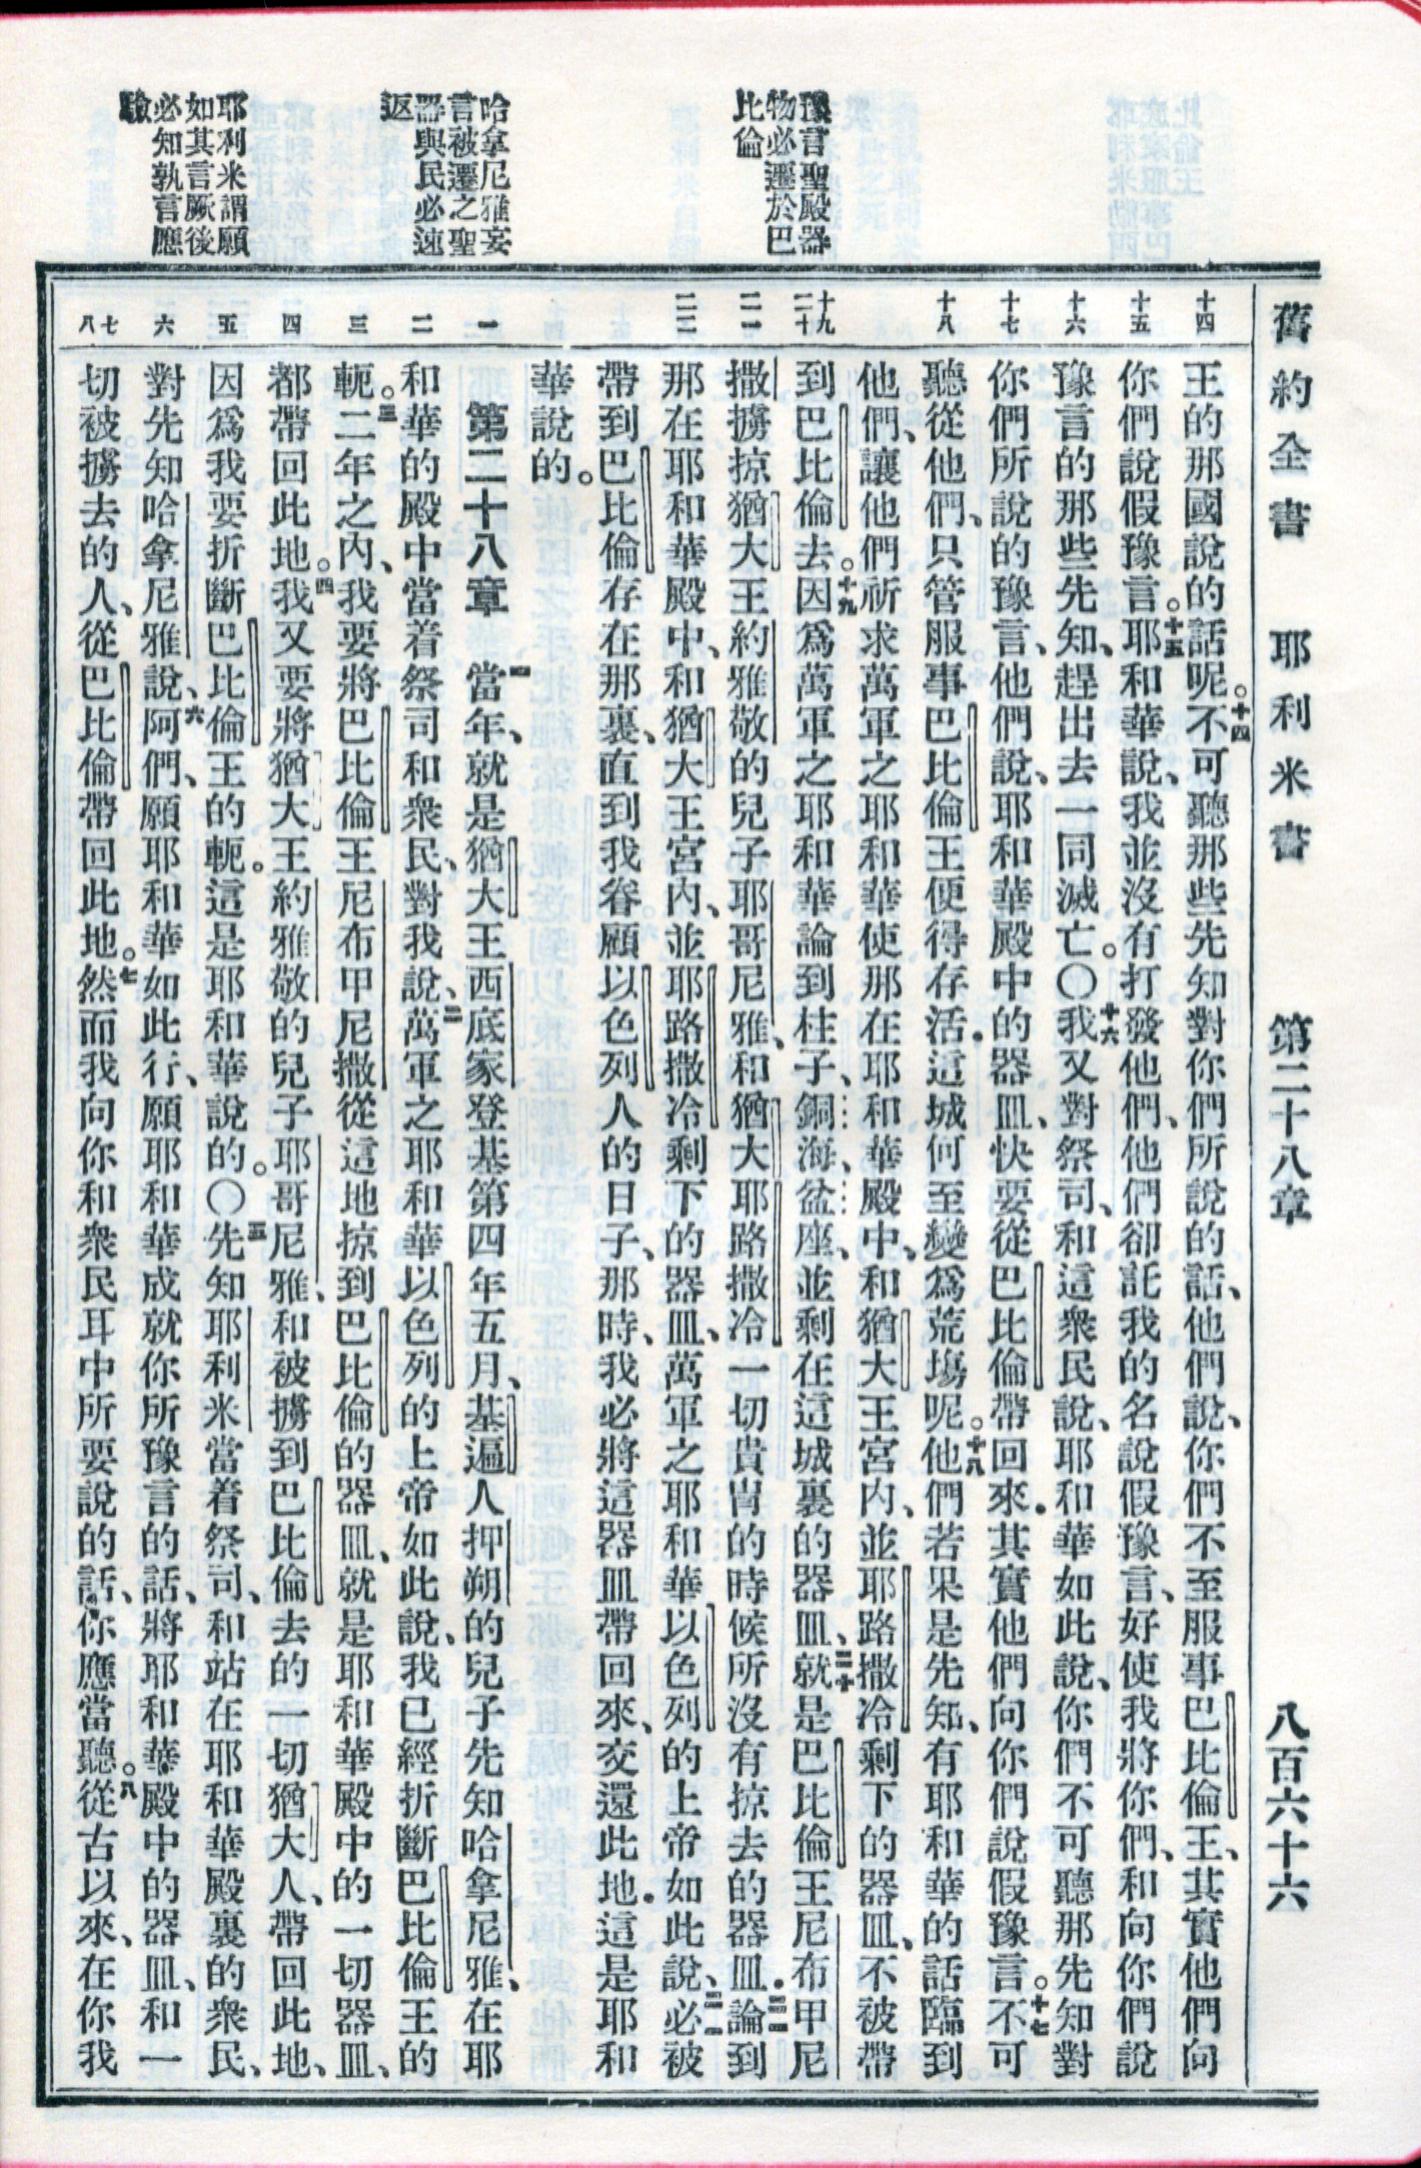 舊約全書　耶利米書　第二十八章　八百六十六
豫言聖殿器
物必遷於巴
比倫
哈拿尼雅妄
言被遷之聖
器與民必速
返
耶利米謂願
如其言厥後
必知孰言應
驗
十四　十五　十六　十七　十八　十九　二十　二一　二二　一　二　三　四　五　六　七　八
王的那國說的話呢。十四不可聽那些先知對你們所說的話、他們說、你們不至服事巴比倫王、其實他們向
你們說假豫言。十五耶和華說、我並沒有打發他們、他們卻託我的名說假豫言、好使我將你們、和向你們說
豫言的那些先知、趕出去一同滅亡。〇十六我又對祭司、和這衆民說、耶和華如此說、你們不可聽那先知對
你們所說的豫言、他們說、耶和華殿中的器皿、快要從巴比倫帶回來．其實他們向你們說假豫言。十七不可
聽從他們、只管服事巴比倫王便得存活．這城何至變爲荒塲呢。十八他們若果是先知、有耶和華的話臨到
他們、讓他們祈求萬軍之耶和華使那在耶和華殿中、和猶大王宮內、並耶路撒冷剩下的器皿、不被帶
到巴比倫去。十九因爲萬軍之耶和華論到柱子、銅海、盆座、並剩在這城裏的器皿、二十就是巴比倫王尼布甲尼
撒擄掠猶大王約雅敬的兒子耶哥尼雅、和猶大耶路撒冷一切貴冑的時候所沒有掠去的器皿．二一論到
那在耶和華殿中、和猶大王宮內、並耶路撒冷剩下的器皿、萬軍之耶和華以色列的上帝如此說、二二必被
帶到巴比倫存在那裏、直到我眷顧以色列人的日子、那時、我必將這器皿帶回來、交還此地．這是耶和
華說的。
第二十八章　一當年、就是猶大王西底家登基第四年五月、基遍人押朔的兒子先知哈拿尼雅、在耶
和華的殿中當着祭司和衆民、對我說、二萬軍之耶和華以色列的上帝如此說、我已經折斷巴比倫王的
軛。三二年之內、我要將巴比倫王尼布甲尼撒從這地掠到巴比倫的器皿、就是耶和華殿中的一切器皿、
都帶回此地。四我又要將猶大王約雅敬的兒子耶哥尼雅、和被擄到巴比倫去的一切猶大人、帶回此地、
因爲我要折斷巴比倫王的軛。這是耶和華說的。〇五先知耶利米當着祭司、和站在耶和華殿裏的衆民、
對先知哈拿尼雅說、六阿們、願耶和華如此行、願耶和華成就你所豫言的話、將耶和華殿中的器皿、和一
切被擄去的人、從巴比倫帶回此地。七然而我向你和衆民耳中所要說的話、你應當聽。八從古以來、在你我